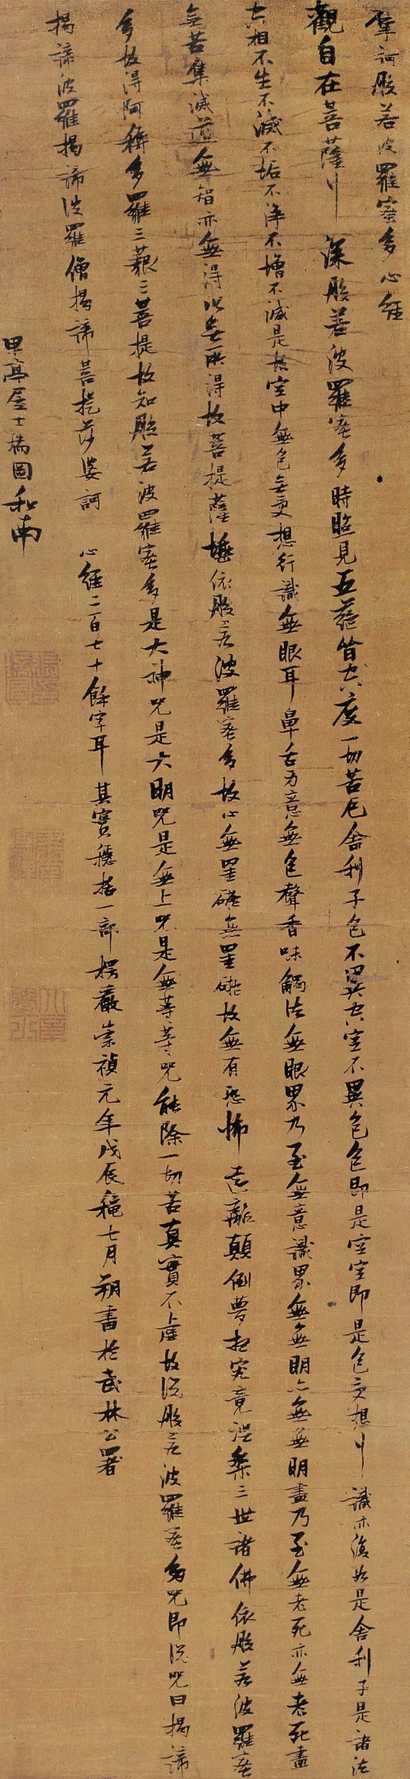 摩訶般若波羅蜜多心經
觀自在菩薩行深般若波羅蜜多時照見五蘊皆空度一切苦厄舍利子色不異空空不異色色即是空空即是色受想行識亦復如是舍利子是諸法
空相不生不滅不垢不淨不增不減是故空中無色無受想行識無眼耳鼻舌身意無色聲香味觸法無眼界乃至無意識界無無明亦無無明盡乃至無老死亦無老死盡
無苦集滅道無智亦無得以無所得故菩提薩埵依般若波羅蜜多故心無罣礙無罣礙故無有恐怖遠離顛倒夢想究竟涅槃三世諸佛依般若波羅蜜
多故得阿耨多羅三藐三菩提故知般若波羅蜜多是大神咒是大明咒是無上咒是無等等咒能除一切苦真實不虛故說般若波羅蜜多咒即說咒曰揭諦
揭諦波羅揭諦波羅僧揭諦菩提莎婆訶 心經二百七十餘字耳其實櫽括一部楞嚴崇禎元年戊辰穐七月朔書於武林公署
居士瑞圖和南